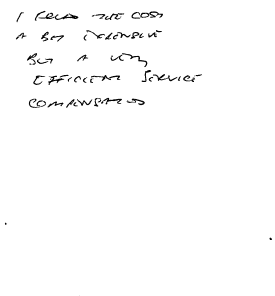 I FOUND THE COST
A BIT EXPENSIVE
BUT A VERY
EFFICIENT SERVICE
COMPENSATED